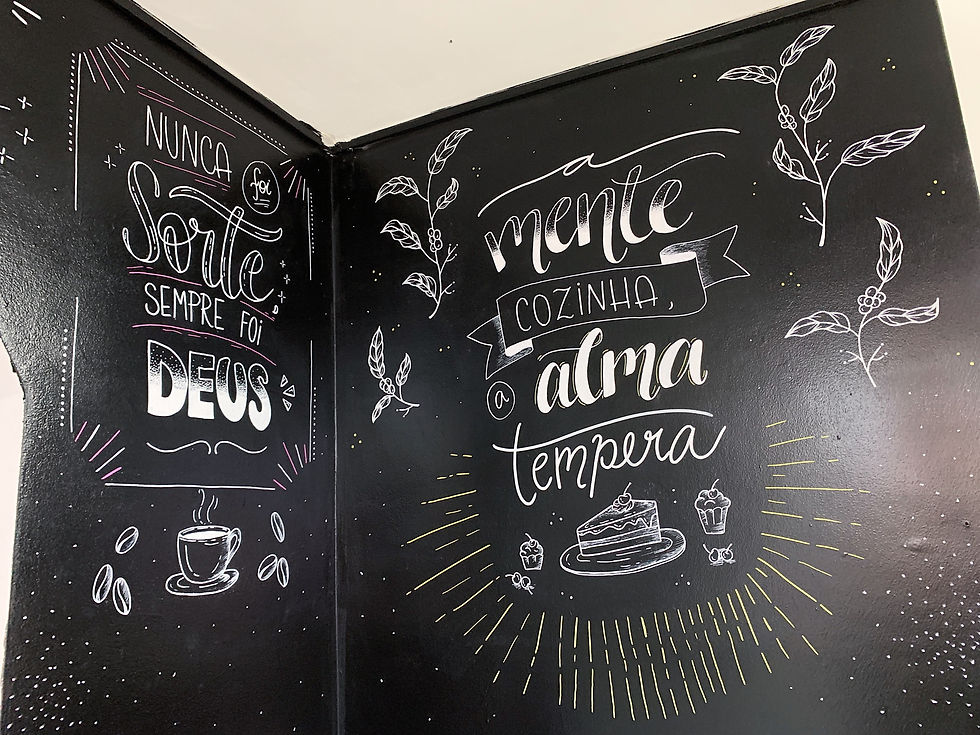 NUNCA
foi
Sorte,
SEMPRE FOI
DEUS
a
mente
COZINHA,
a alma
tempera